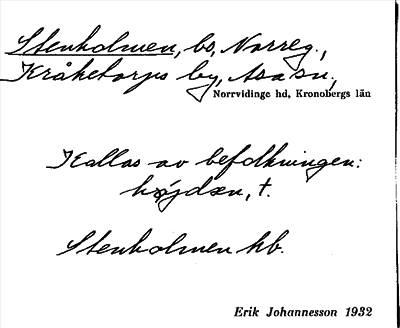 Stenholmen, bs, Norreg.,
Kråketorps by, Asa sn,
Norrvidinge hd, Kronobergs län
Kallas av befolkningen:
höjdæn, t.
Stenholmen hb.
Erik Johannesson 1932